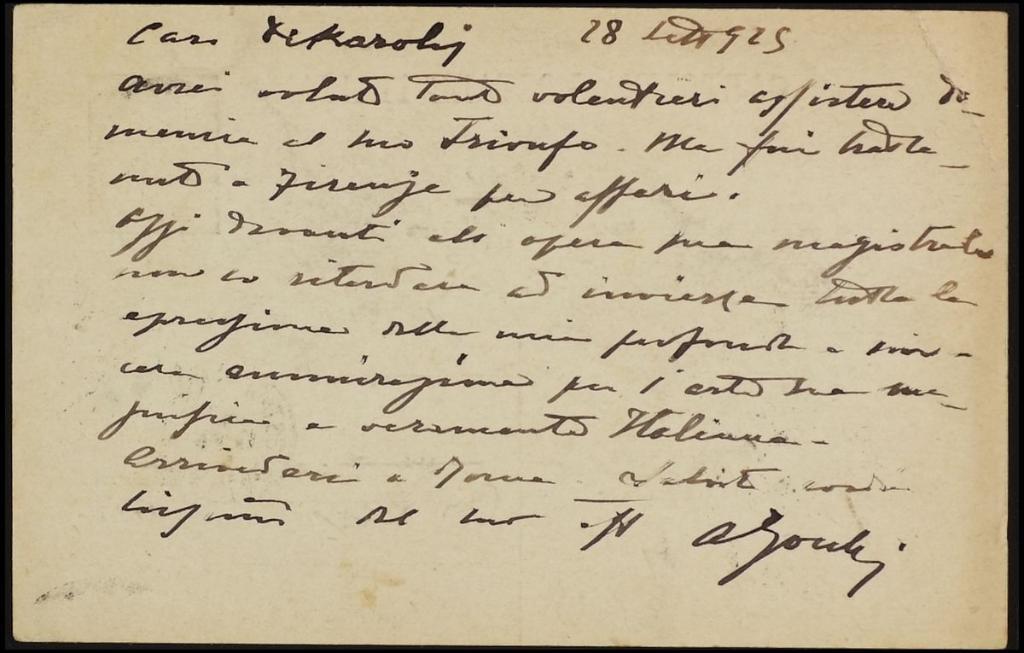 Caro De Karolij 28 Sett 925
avrei voluto tanto volentieri assistere do-
menica al suo Trionfo. Ma fui tratte-
nuto a Firenze per affari.
Oggi davanti all opera sua magistrale
non so ritardare ad inviarle tutta la
espressione della mia profonda e sin-
cera ammirazione per l'arte sua ma-
gnifica e veramente Italiana.
Arrivederci a Roma. Saluti cordia
lissimi dal suo aff